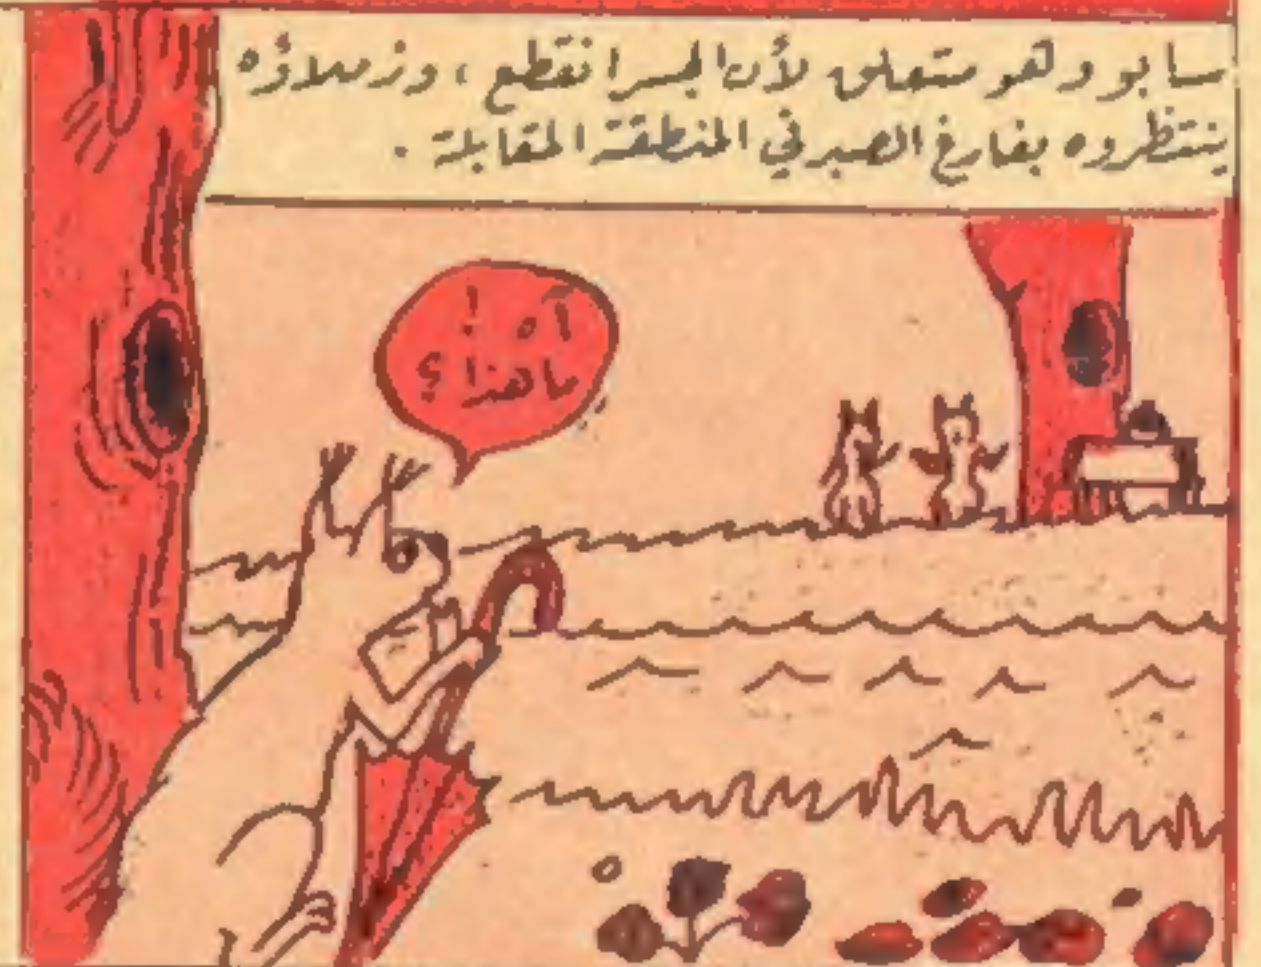 سابو وهو متعلق لأن الجسر انقطع ، وزملاؤه
ينتظروه بفارغ الصبر في المنطقة المقابلة .
آه !
ما هذا ؟